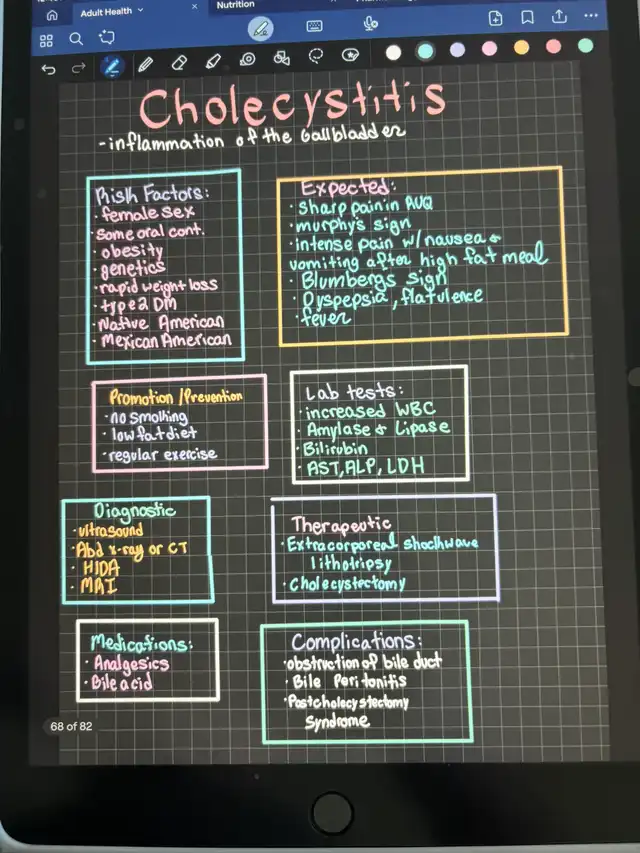 Adult Health
Nutrition
Cholecystitis
-inflammation of the Gallbladder
Risk Factors:
· female sex
· Some oral cont.
· obesity
· genetics
· rapid weight loss
· type 2 DM
· Native American
· Mexican American
Expected:
· Sharp pain in RUQ
· murphy's sign
· intense pain w/ nausea &
vomiting after high fat meal
· Blumbergs sign
· Dyspepsia, flatulence
· fever
Promotion/Prevention
· no smoking
· low fat diet
· regular exercise
Lab tests:
· increased WBC
· Amylase & Lipase
· Bilirubin
· AST, ALP, LDH
Diagnostic
· ultrasound
· Abd x-ray or CT
· HIDA
· MRI
Therapeutic
· Extracorporeal shockwave
lithotripsy
· Cholecystectomy
Medications:
· Analgesics
· Bile acid
Complications:
· obstruction of bile duct
· Bile Peritonitis
· Postcholecystectomy
Syndrome
68 of 82